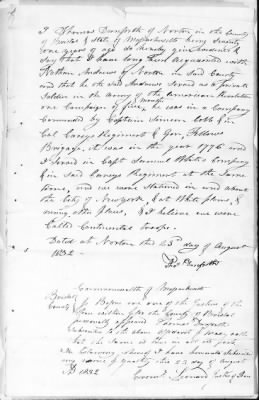 I Thomas Danforth of Norton in the County
of Bristol & State of Massachusetts being seventy
one years of age do hereby give evidence &
say that I have long been acquainted with
Nathan Andrews of Norton in said County
and that he the said Andrews served as a private
soldier in the army of the american revolution
one Campaign of five months, he was in a Company
Commanded by Captain Simeon Cobb & in
Col Careys Regiment & Gen. Fellows
Brigage, it was in the year 1776 and
I served in Capt Samuel Company
& in said Careys Regiment at the same
time, and we were stationed in and about
the City of Newyork, & at White plains, &
among other places, & I believe we were
Called Continental troops.
Dated at Norton this 23d day of August
1832
Thos Danforth
Commonwealth of Massachusetts
Bristol
County ss Before me one of the Justices of the
Peace within & for the County of Bristol
personally appeared Thomas Danforth
Subscriber to the above & was
that the same is true in all its parts
In testimony whereof I have hereunto Subscribed
my name & this 23 day of August
AD 1832
Leonard Justice of Peace